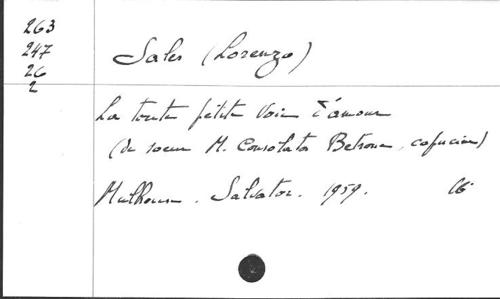 263
247
26
2
Sales (Lorenzo)
La toute petite voie d'amour
(de soeur M. Consolata Betrone, capucine)
Mulhouse. Salvator. 1959. 16°